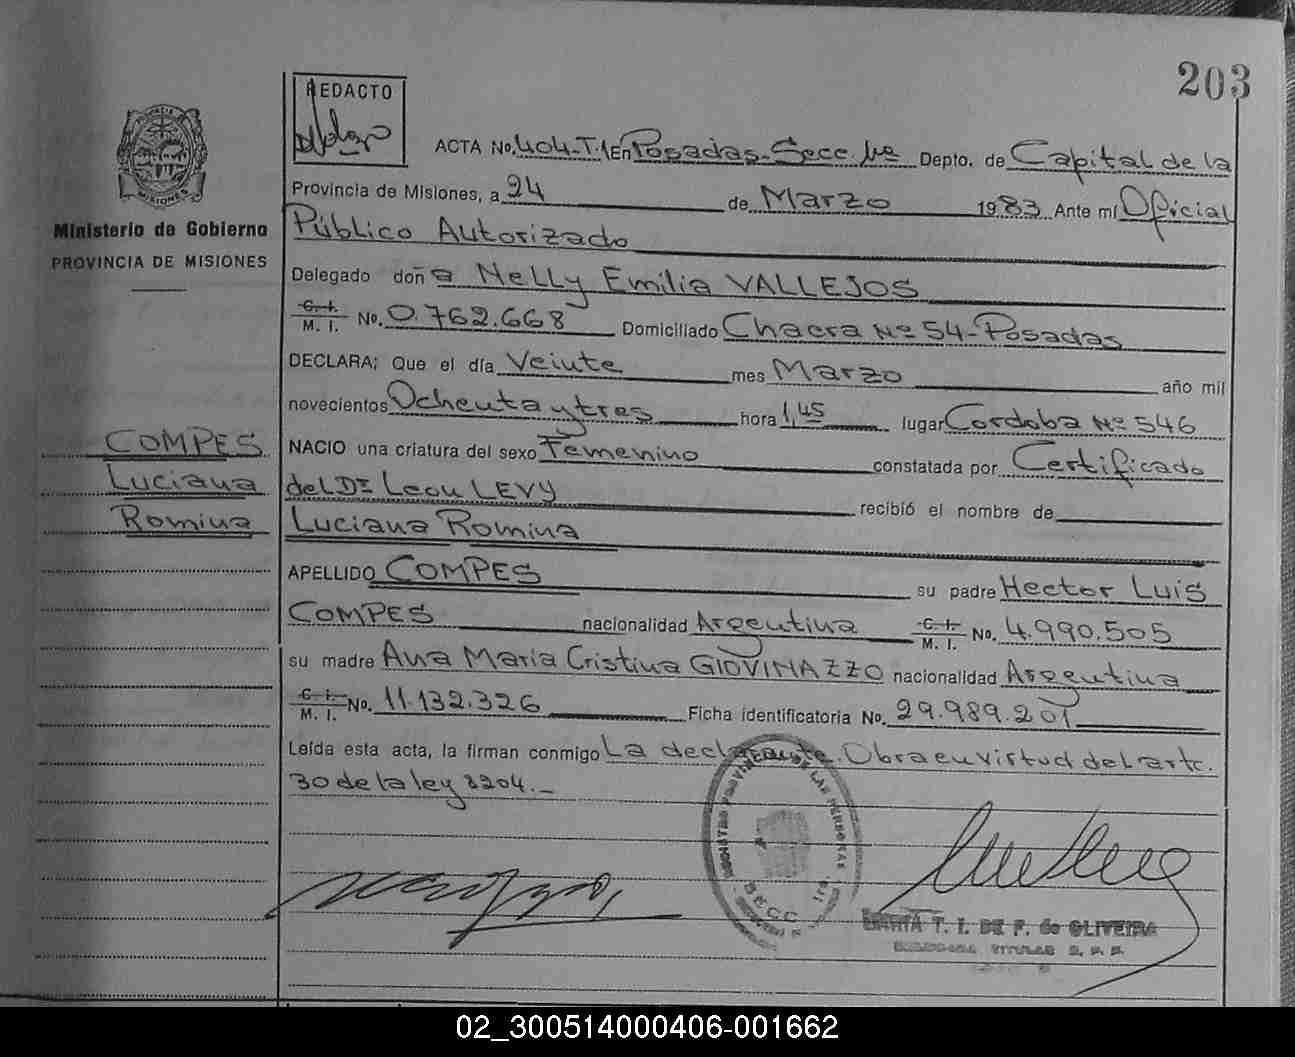 203
REDACTO
ACTA No. 404-T.1 En Posadas-Secc. 1ª Depto. de Capital de la
Provincia de Misiones, a 24 de Marzo 1983 Ante mí Oficial
Ministerio de Gobierno
PROVINCIA DE MISIONES
Público Autorizado
Delegado doña Nelly Emilia VALLEJOS
C. I.
M. I. No. 0.762.668 Domiciliado Chacra Nº 54-Posadas
DECLARA; Que el día Veinte mes Marzo año mil
novecientos Ochenta y tres hora 1,45 lugar Cordoba Nº 546
COMPES
Luciana
Romina
NACIO una criatura del sexo Femenino constatada por Certificado
del Dr Leon LEVY recibió el nombre de
Luciana Romina
APELLIDO COMPES su padre Hector Luis
COMPES nacionalidad Argentina C. I. M. I. No. 4.990.505
su madre Ana Maria Cristina GIOVINAZZO nacionalidad Argentina
C. I.
M. I. No. 11.132.326 Ficha identificatoria No. 29.989.201
Leída esta acta, la firman conmigo La declarante. Obra en virtud del artc.
30 de la ley 8204.-
REGISTRO PROVINCIAL DE LAS PERSONAS
SECC.
MARTA T. I. DE F. de OLIVEIRA
TITULAR
02_300514000406-001662